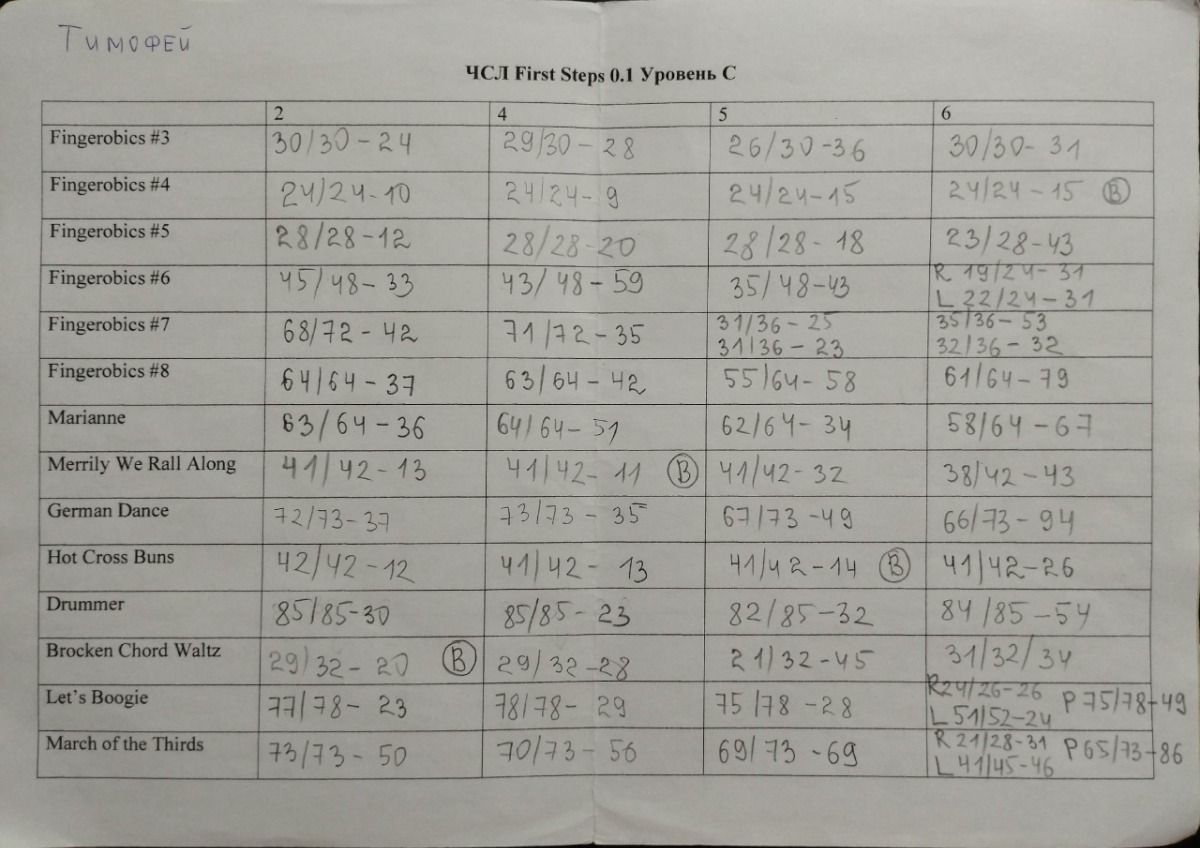 Тимофей
ЧСЛ First Steps 0.1 Уровень С
2 4 5 6
Fingerobics #3 30/30-24 29/30-28 26/30-36 30/30-31
Fingerobics #4 24/24-10 24/24-9 24/24-15 24/24-15 B
Fingerobics #5 28/28-12 28/28-20 28/28-18 23/28-43
Fingerobics #6 45/48-33 43/48-59 35/48-43 R 19/24-31
L 22/24-31
Fingerobics #7 68/72-42 71/72-35 31/36-25 35/36-53
31/36-23 32/36-32
Fingerobics #8 64/64-37 63/64-42 55/64-58 61/64-79
Marianne 63/64-36 64/64-51 62/64-34 58/64-67
Merrily We Rall Along 41/42-13 41/42-11 B 41/42-32 38/42-43
German Dance 72/73-37 73/73-35 67/73-49 66/73-94
Hot Cross Buns 42/42-12 41/42-13 41/42-14 B 41/42-26
Drummer 85/85-30 85/85-23 82/85-32 84/85-54
Brocken Chord Waltz 29/32-20 B 29/32-28 21/32-45 31/32/34
Let's Boogie 77/78-23 78/78-29 75/78-28 R24/26-26 P 75/78-49
L 51/52-24
March of the Thirds 73/73-50 70/73-56 69/73-69 R 21/28-31 P 65/73-86
L 41/45-46